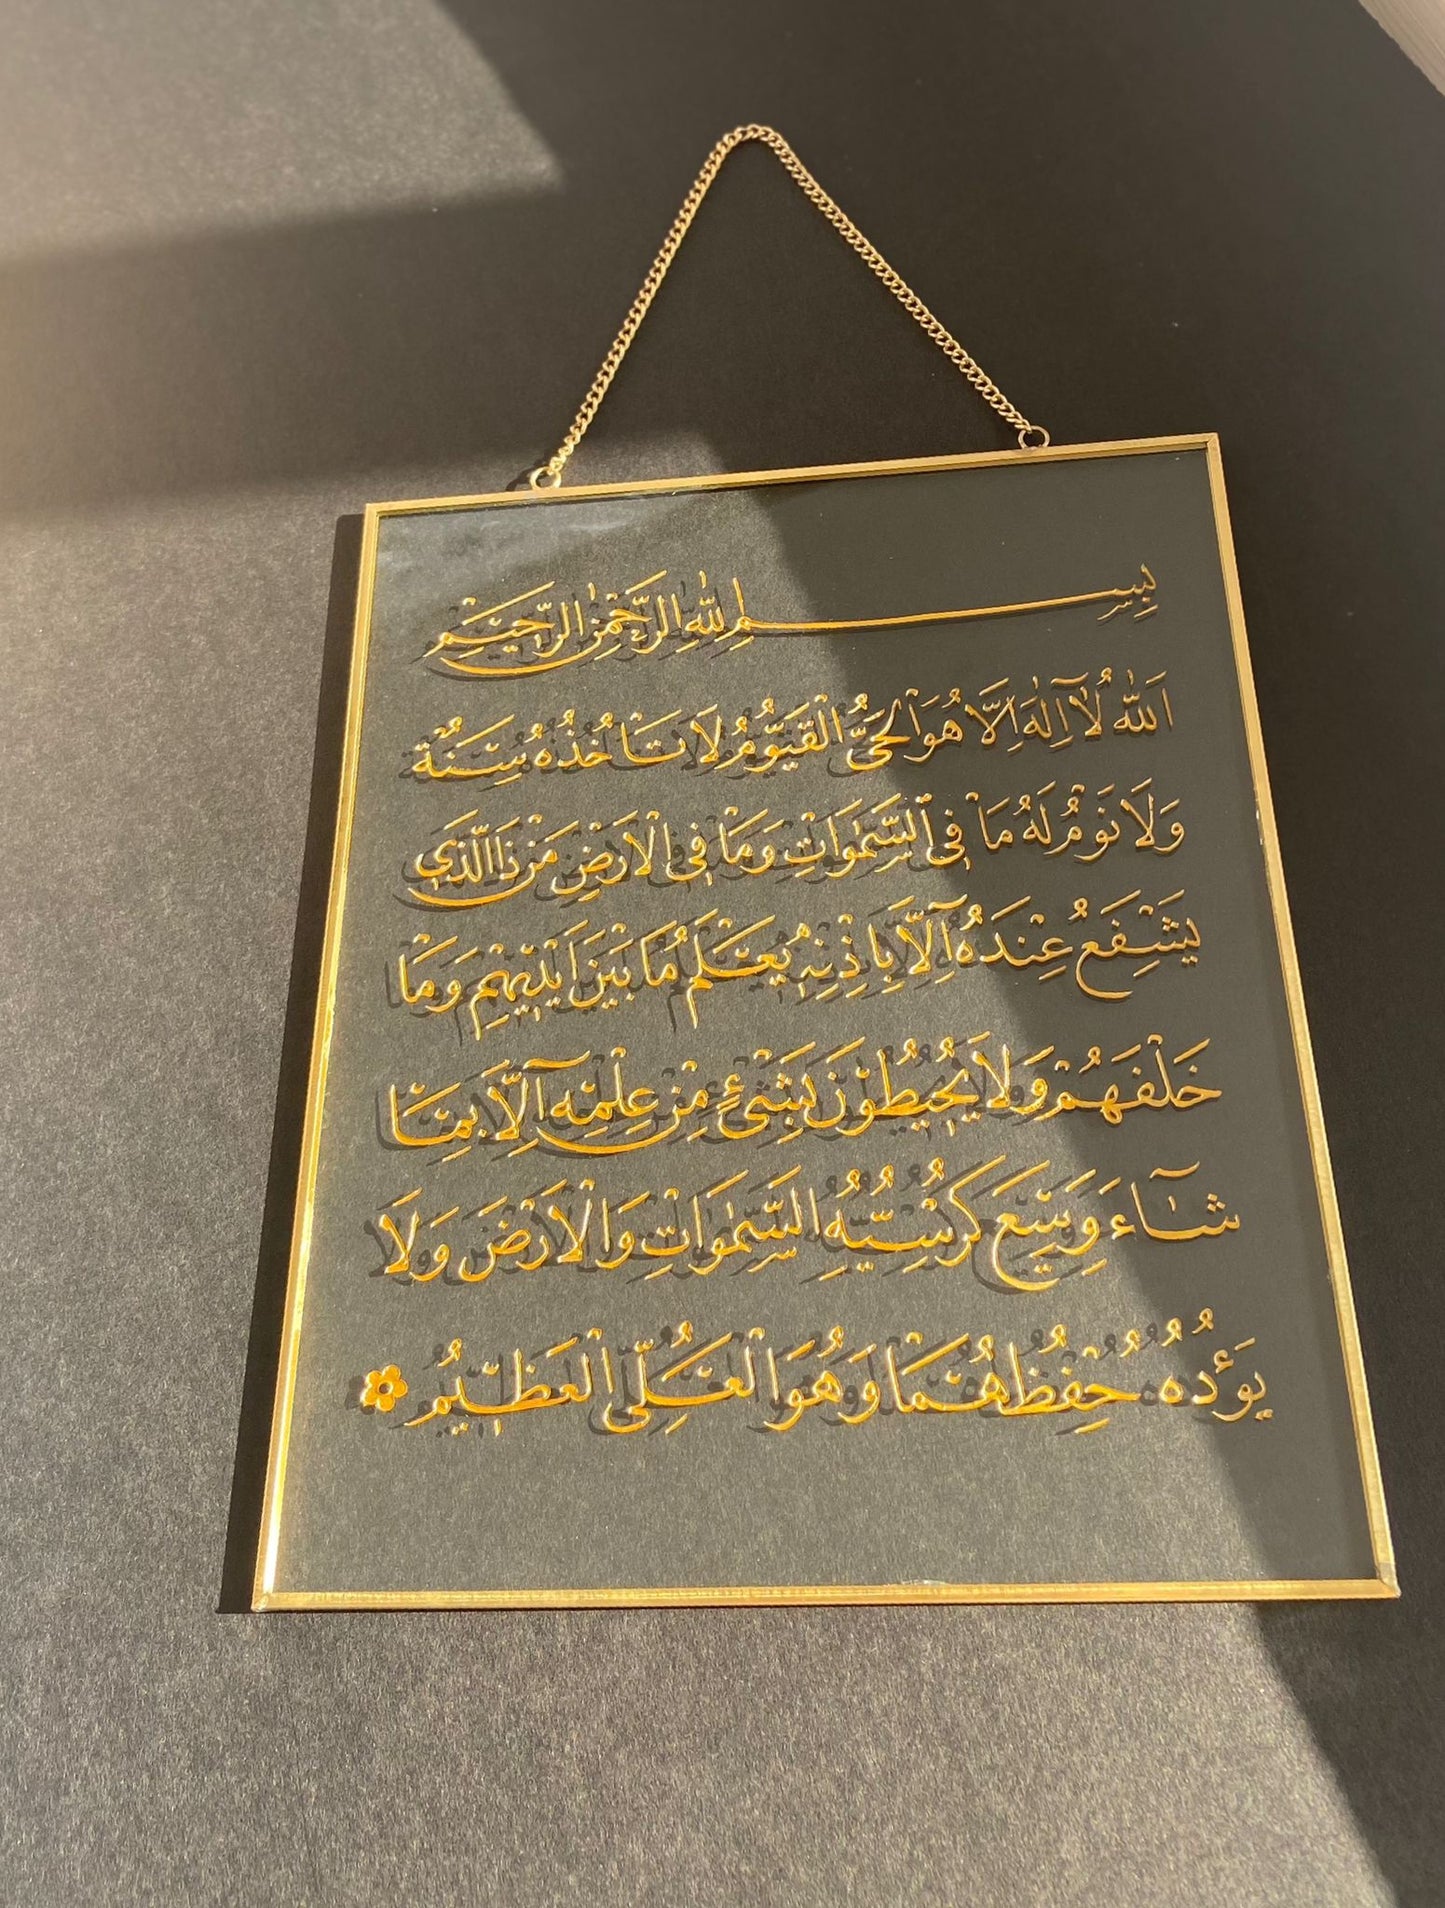 بِسْمِ اللّٰهِ الرَّحْمٰنِ الرَّحِيْمِ
اَللّٰهُ لَآ اِلٰهَ اِلَّا هُوَ الْحَيُّ الْقَيُّوْمُ لَا تَاْخُذُهٗ سِنَةٌ
وَلَا نَوْمٌ لَهٗ مَا فِى السَّمٰوَاتِ وَمَا فِى الْاَرْضِ مَنْ ذَا الَّذِى
يَشْفَعُ عِنْدَهٗٓ اِلَّا بِاِذْنِهٖ يَعْلَمُ مَا بَيْنَ اَيْدِيْهِمْ وَمَا
خَلْفَهُمْ وَلَا يُحِيْطُوْنَ بِشَىْءٍ مِنْ عِلْمِهٖٓ اِلَّا بِمَا
شَآءَ وَسِعَ كُرْسِيُّهُ السَّمٰوَاتِ وَالْاَرْضَ وَلَا
يَؤُدُهٗ حِفْظُهُمَا وَهُوَ الْعَلِىُّ الْعَظِيْمُ